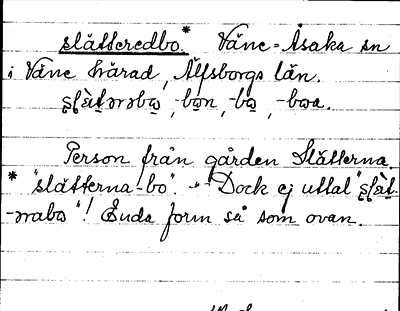 slätteredbo.* Väne-Åsaka sn
i Väne härad, Älfsborgs län.
-bon, -bo, -boa.
Person från gården Slätterna.
* "slätterna-bo". - Dock ej uttal
! Enda form så som ovan.